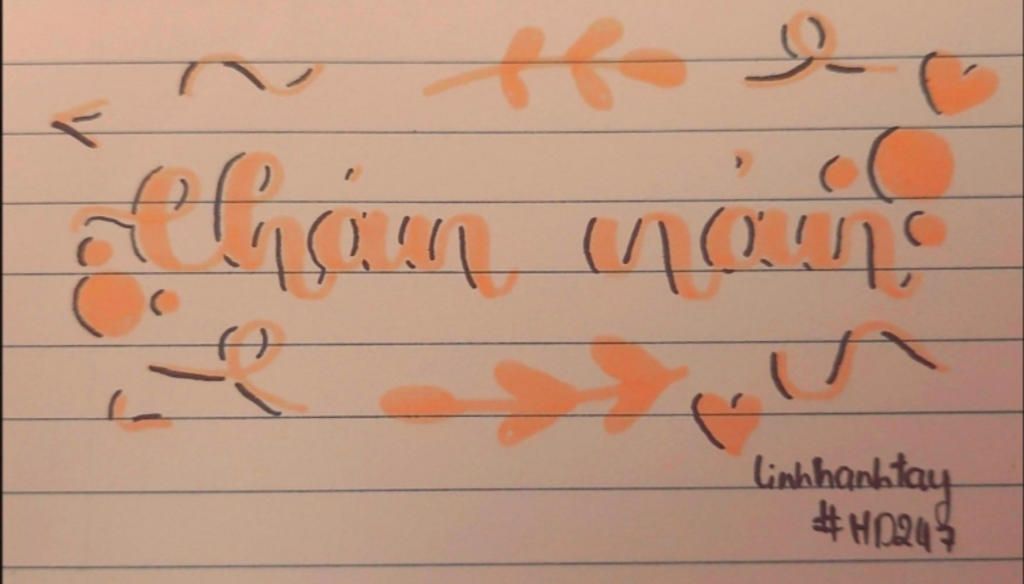 Chán nản
linhhanhtay
#HD247